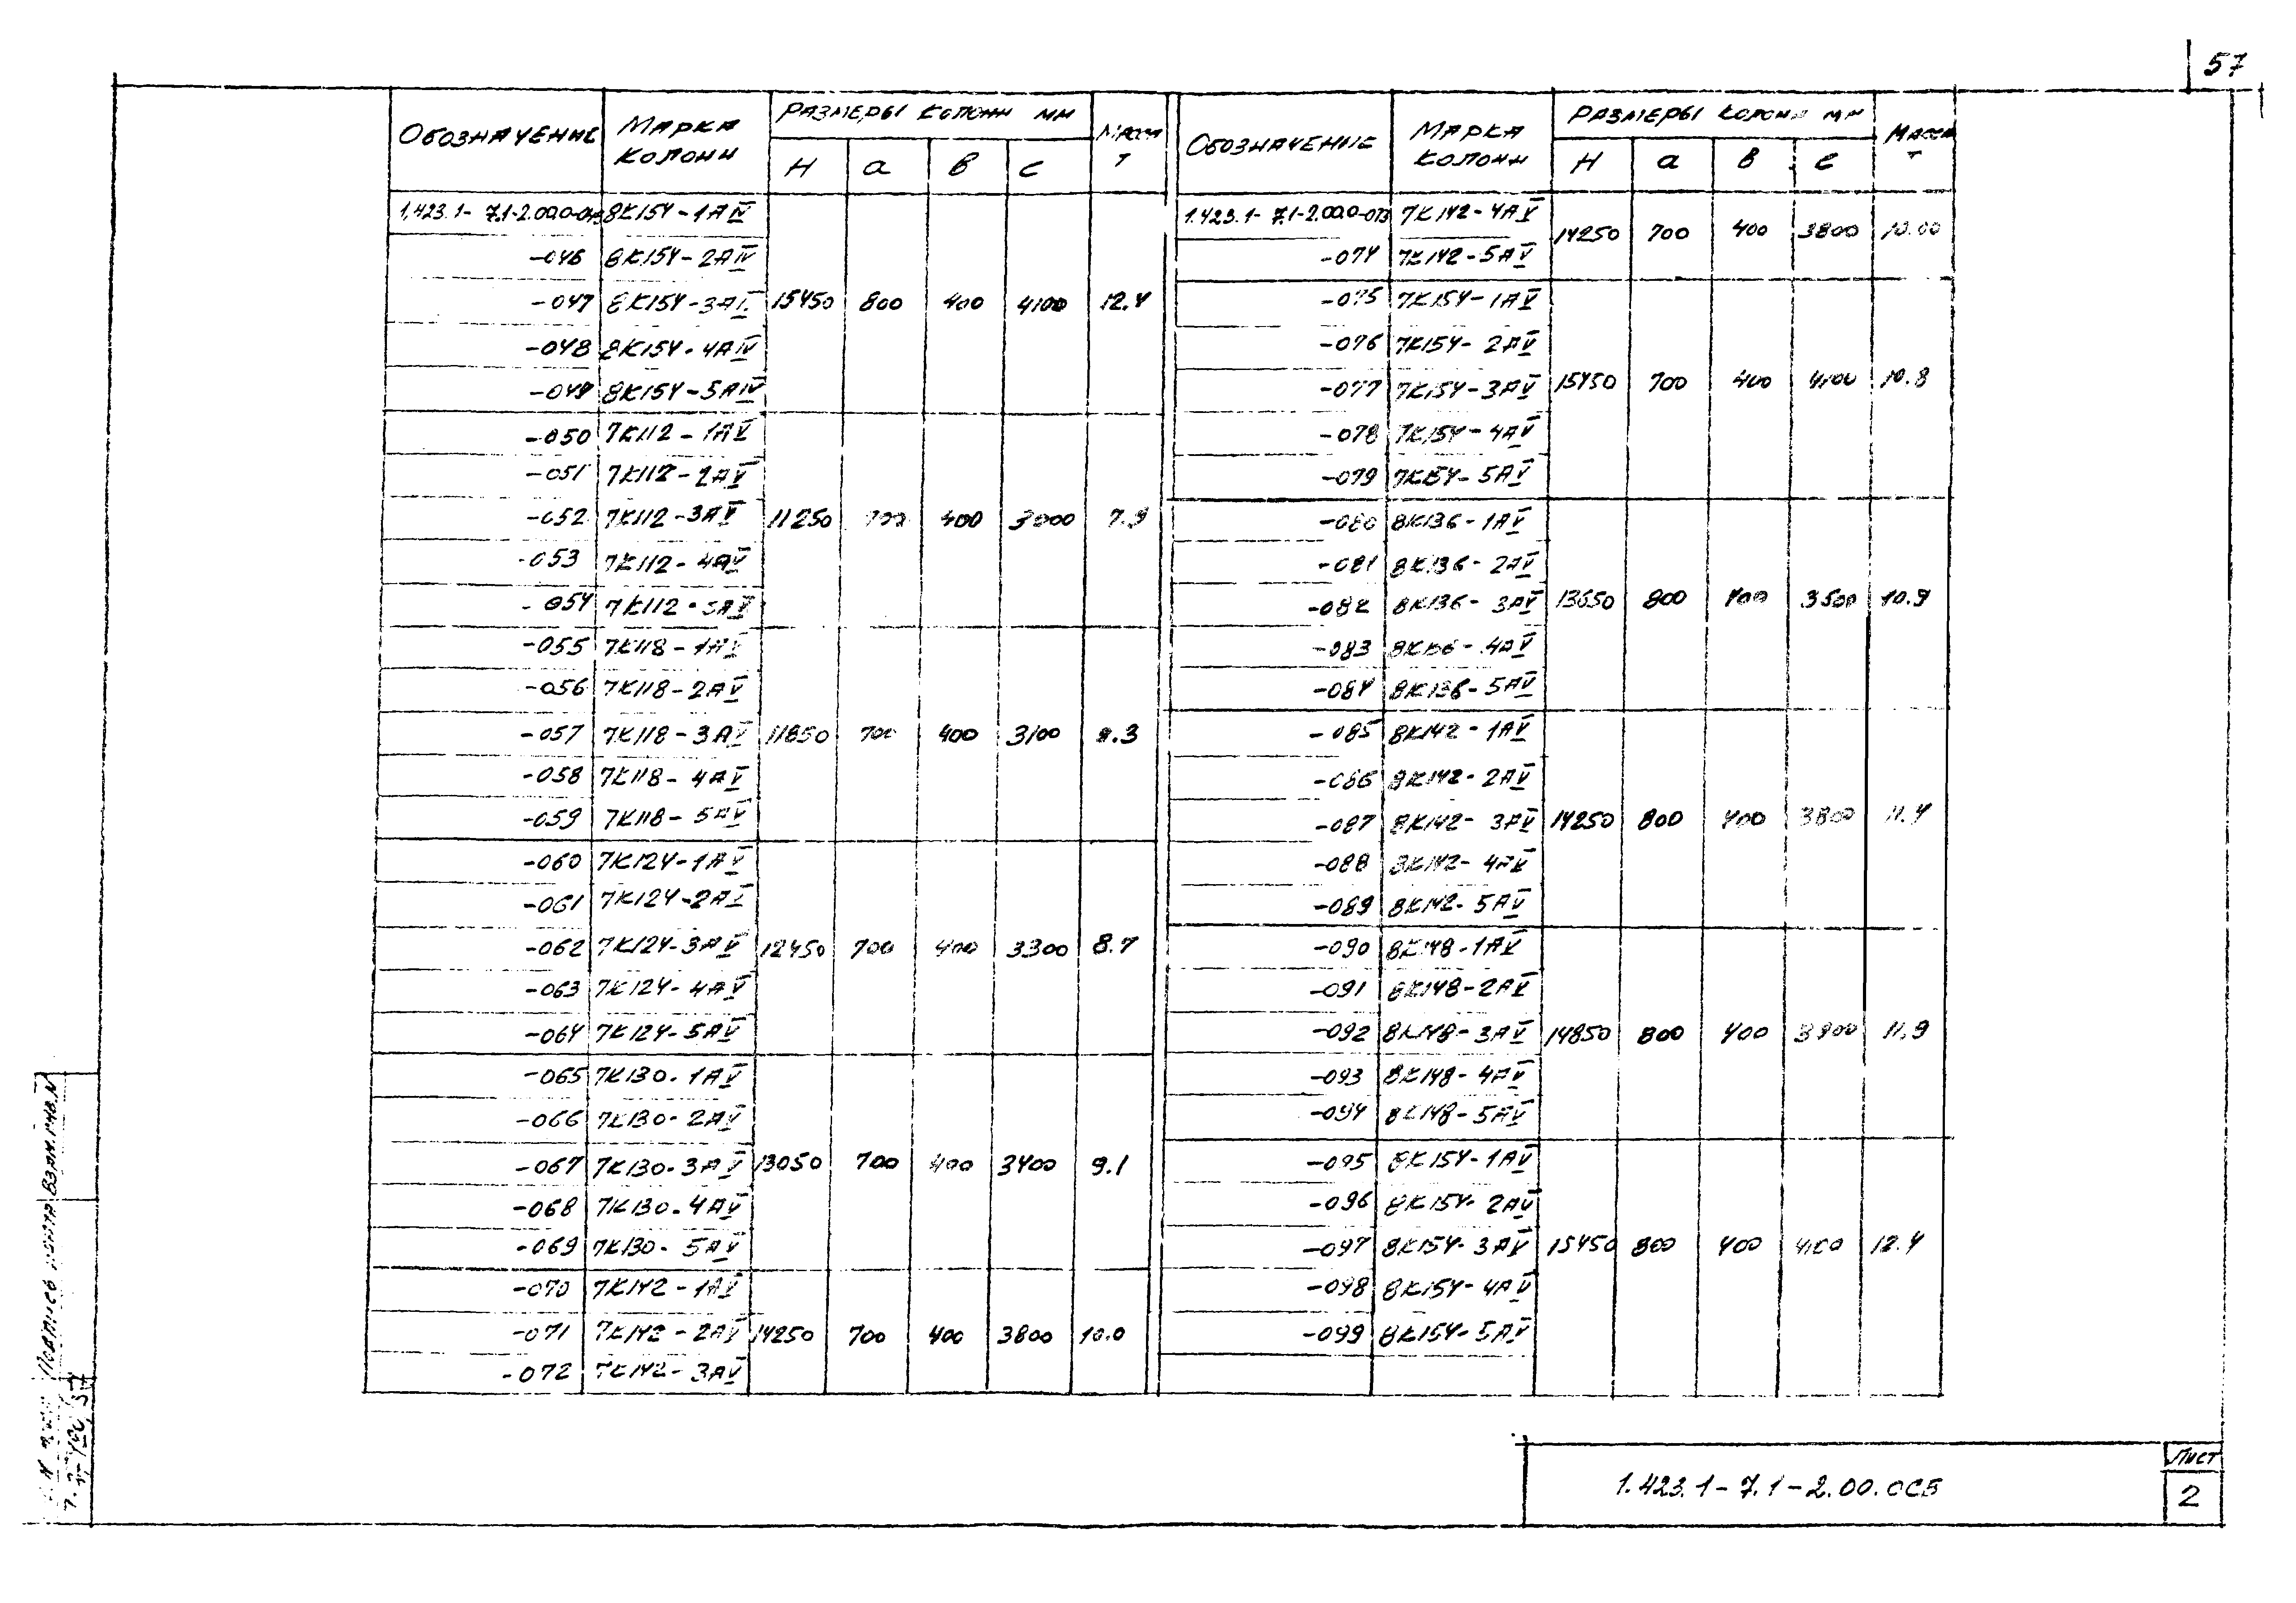 57
ОБОЗНАЧЕНИЕ МАРКА КОЛОНН РАЗМЕРЫ КОЛОНН ММ МАССА Т
Н а в с
1.423.1-7.1-2.00.0-045 8К154-1АIV
-046 8К154-2АIV
-047 8К154-3АIV 15450 800 400 4100 12.4
-048 8К154-4АIV
-049 8К154-5АIV
-050 7К112-1АV
-051 7К112-2АV
-052 7К112-3АV 11250 700 400 3000 7.9
-053 7К112-4АV
-054 7К112-5АV
-055 7К118-1АV
-056 7К118-2АV
-057 7К118-3АV 11850 700 400 3100 8.3
-058 7К118-4АV
-059 7К118-5АV
-060 7К124-1АV
-061 7К124-2АV
-062 7К124-3АV 12450 700 400 3300 8.7
-063 7К124-4АV
-064 7К124-5АV
-065 7К130-1АV
-066 7К130-2АV
-067 7К130-3АV 13050 700 400 3400 9.1
-068 7К130-4АV
-069 7К130-5АV
-070 7К142-1АV
-071 7К142-2АV 14250 700 400 3800 10.0
-072 7К142-3АV
ОБОЗНАЧЕНИЕ МАРКА КОЛОНН РАЗМЕРЫ КОЛОНН ММ МАССА Т
Н а в с
1.423.1-7.1-2.00.0-073 7К142-4АV 14250 700 400 3800 10.00
-074 7К142-5АV
-075 7К154-1АV
-076 7К154-2АV
-077 7К154-3АV 15450 700 400 4100 10.8
-078 7К154-4АV
-079 7К154-5АV
-080 8К136-1АV
-081 8К136-2АV
-082 8К136-3АV 13650 800 400 3500 10.9
-083 8К136-4АV
-084 8К136-5АV
-085 8К142-1АV
-086 8К142-2АV
-087 8К142-3АV 14250 800 400 3800 11.4
-088 8К142-4АV
-089 8К142-5АV
-090 8К148-1АV
-091 8К148-2АV
-092 8К148-3АV 14850 800 400 3900 11.9
-093 8К148-4АV
-094 8К148-5АV
-095 8К154-1АV
-096 8К154-2АV
-097 8К154-3АV 15450 800 400 4100 12.4
-098 8К154-4АV
-099 8К154-5АV
ВЗАМ.ИНВ.N
1.423.1-7.1-2.00.0СБ
Лист
2